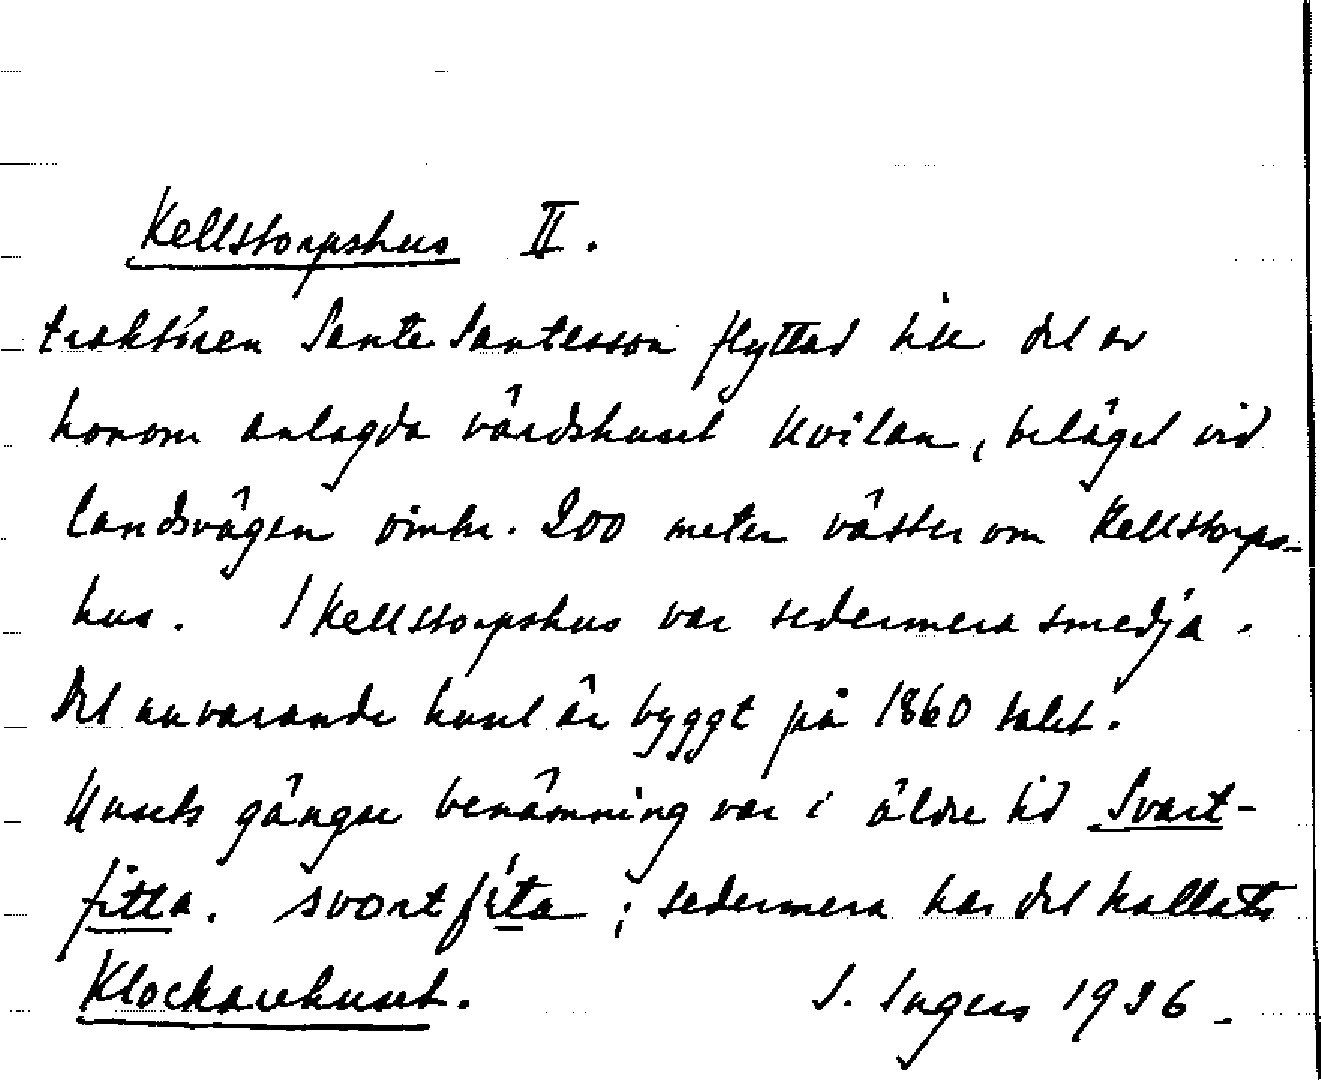 Kellstorpshus II.
traktören Sante Santesson flyttad till det av
honom anlagda värdshuset Kvilan, beläget vid
landsvägen omkr. 200 meter väster om Kellstorps-
hus. I Kellstorpshus var sedermera smedja.
Det nuvarande huset är byggt på 1860 talet.
Husets gängse benämning var i äldre tid Svart-
fitta. svortfita ; sedermera har det kallats
Klockarehuset. I. Ingers 1926.